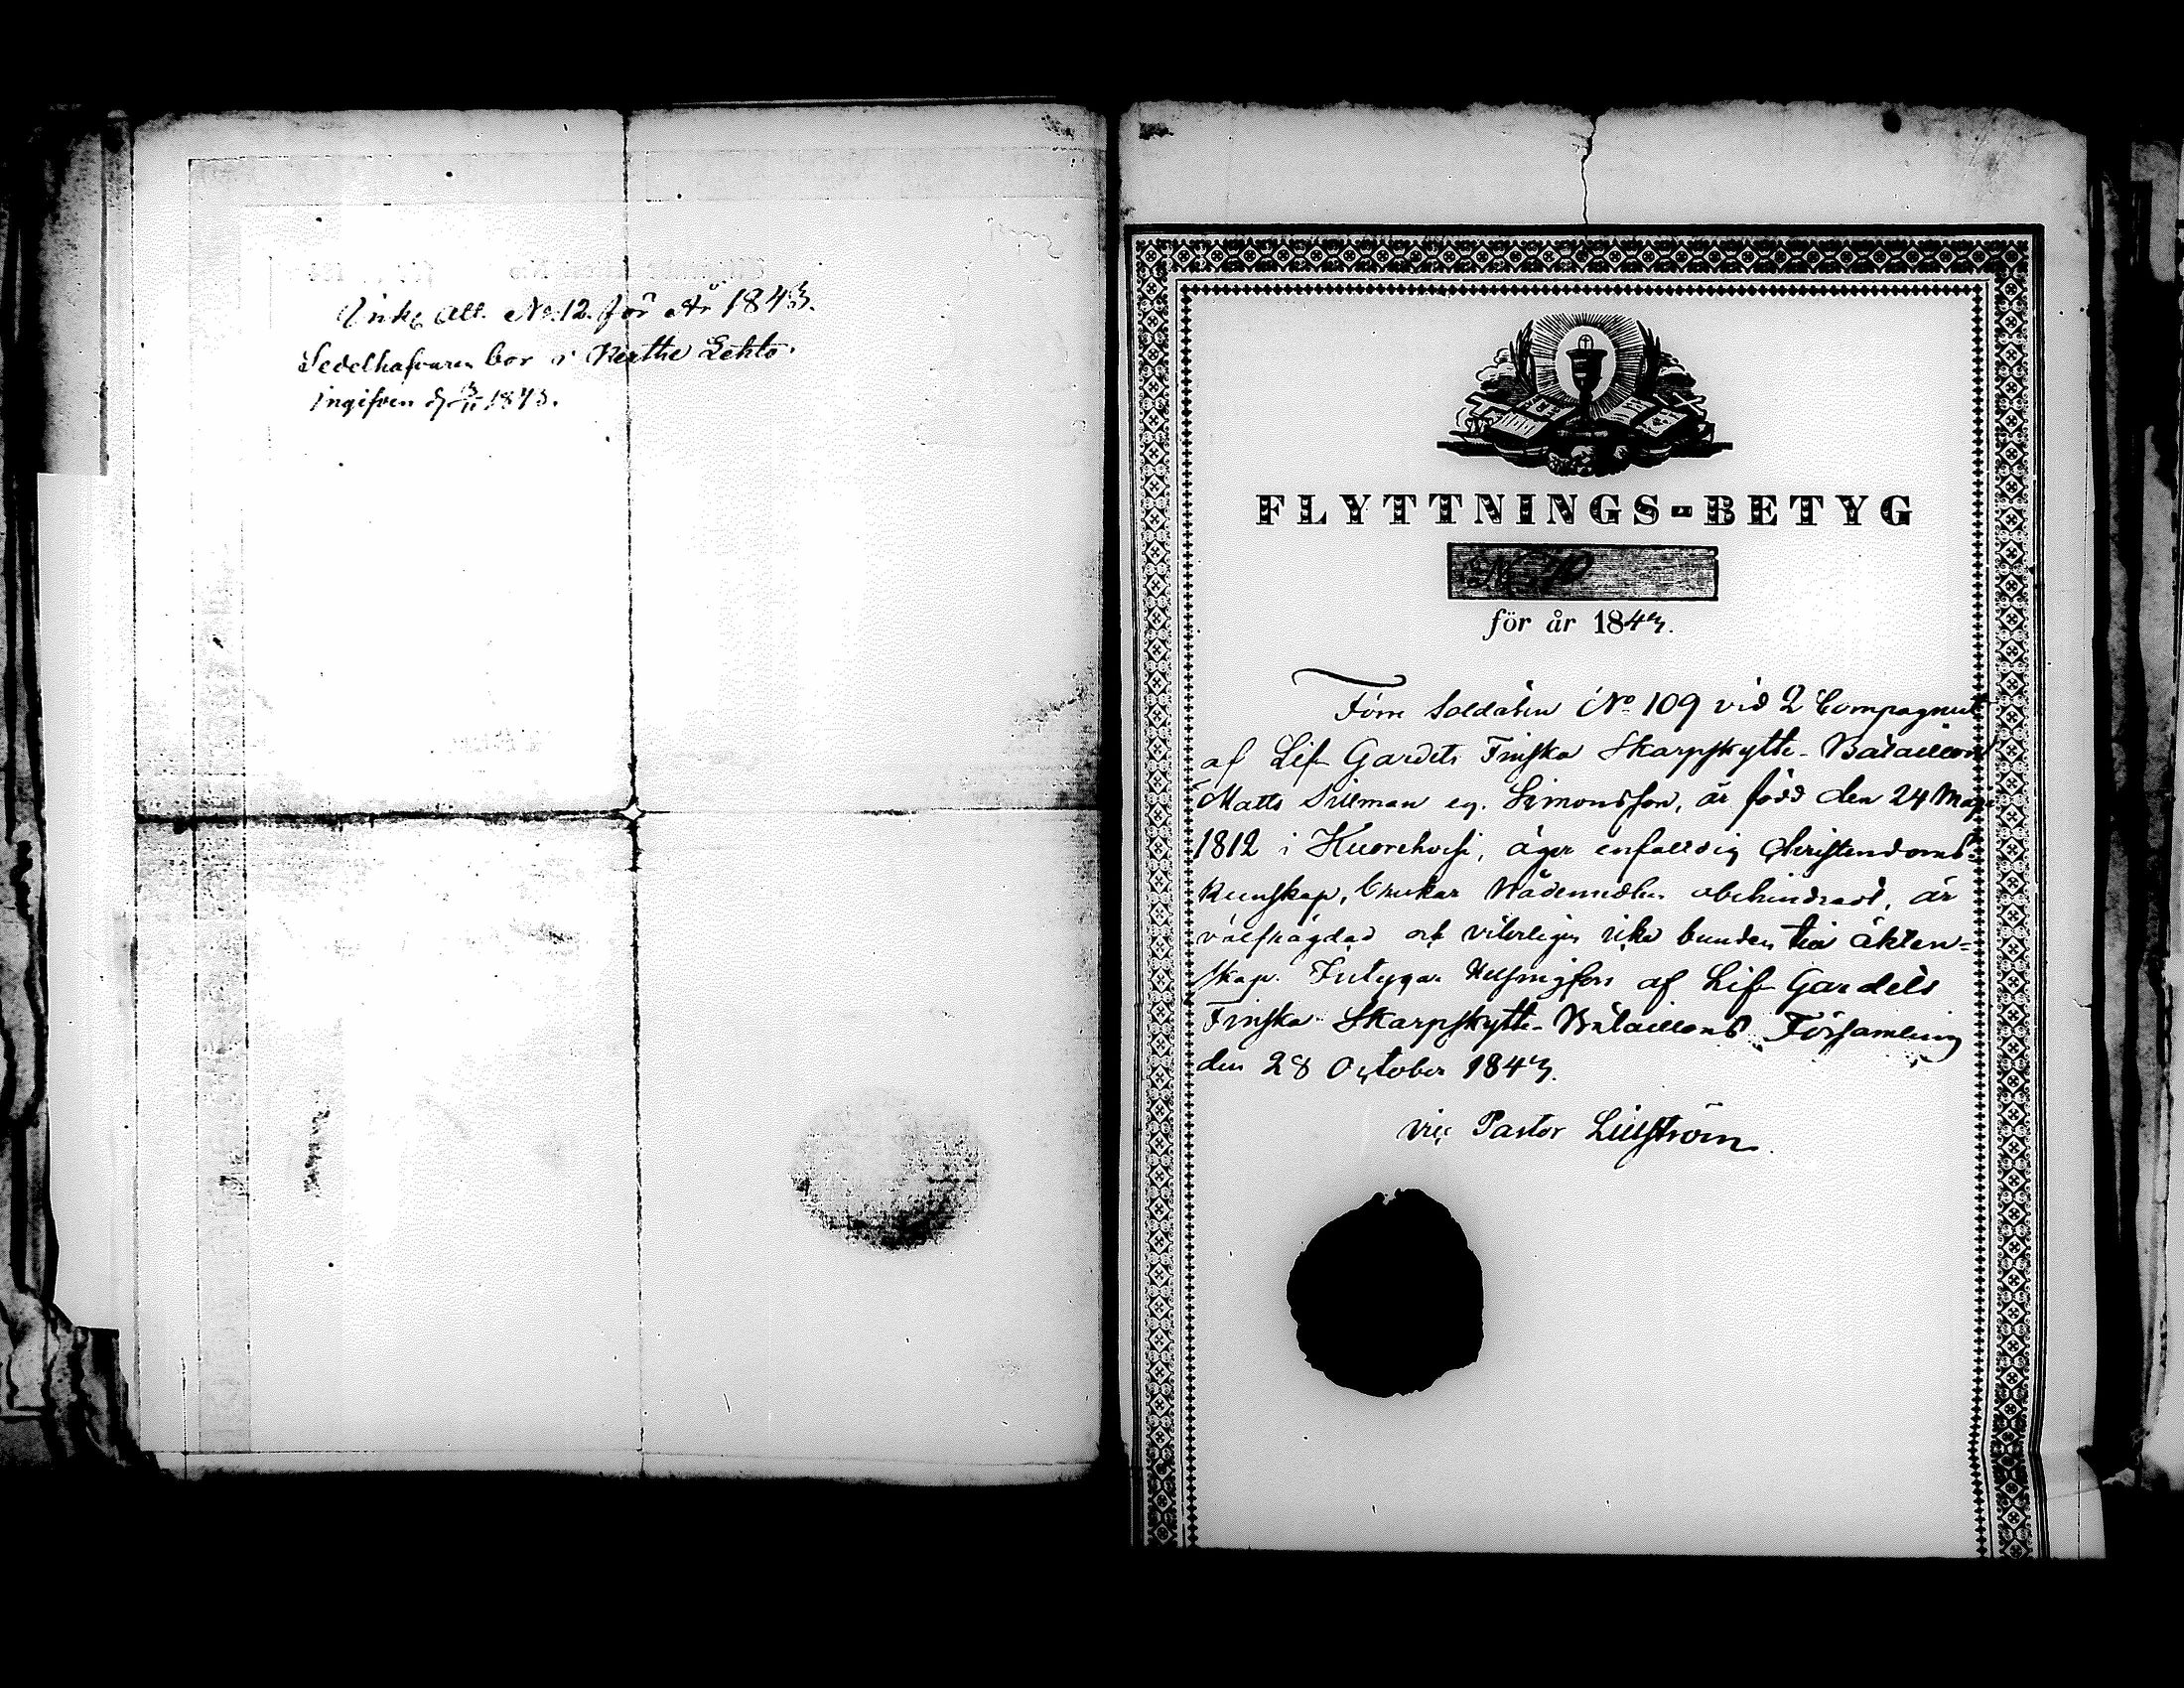 Att. No. 12. för År 1843.
Sedelhafvaren bor i Lehto.
ingifven d 3/11 1843.
FLYTTNINGS-BETYG
No 70
för år 1843.
Förre Soldaten No 109 vid 2 Compagniet
af Lif Gardets Finska Skarpskytte-Bataillon
Matts Sillman eg. Simonsson, är född den 24 Maj
1812 i Kuorehvesi, äger enfalldig Christendoms-
Kunskap, brukar Nådemedlen obehindradt, är
välfrägdad och viterligen icke bunden till äkten=
skap. Intygar Helsingfors af Lif Gardets
Finska Skarpskytte-Bataillons Församling
den 28 October 1843.
vic Pastor Lillström.